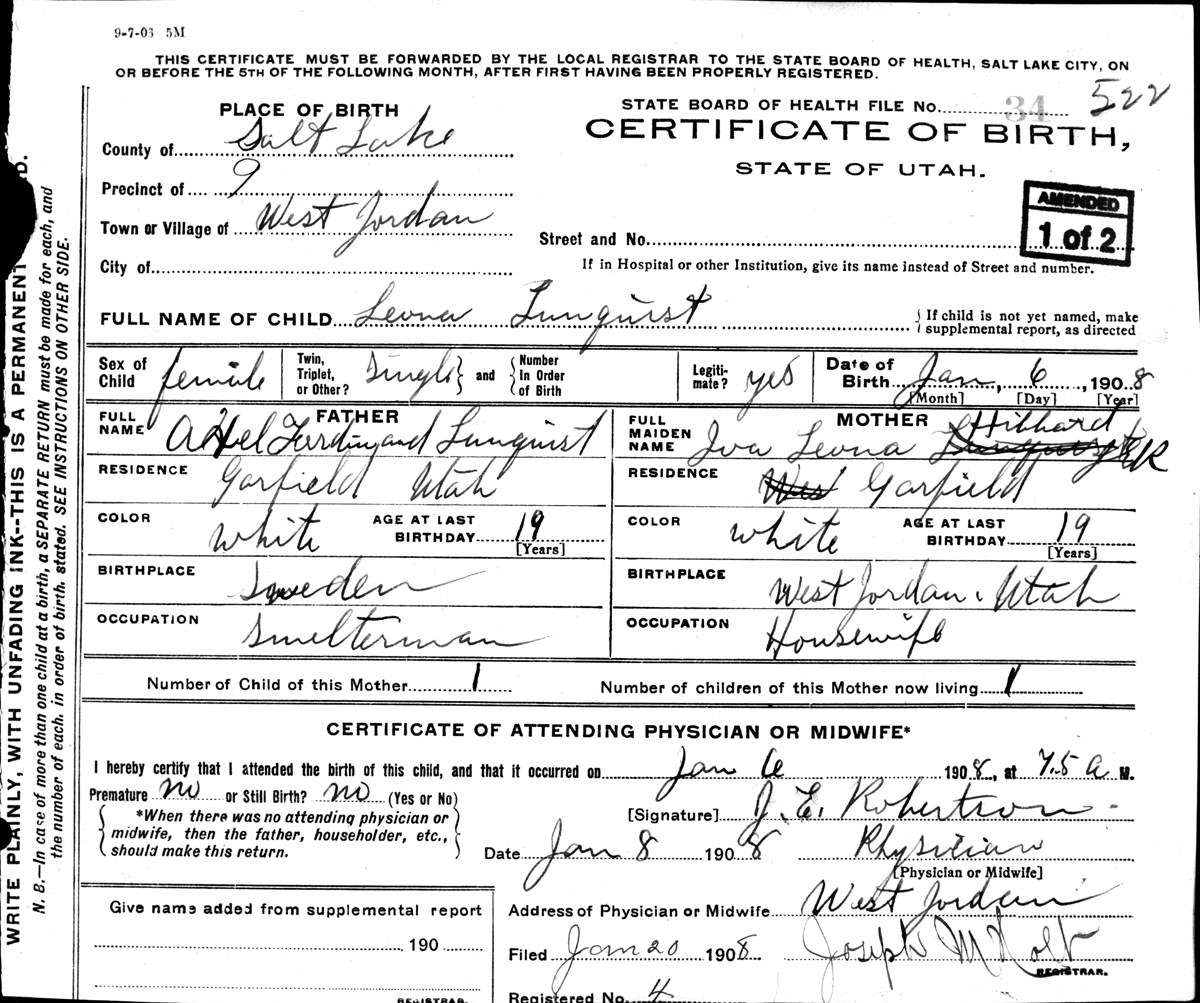 9-7-03 5M
THIS CERTIFICATE MUST BE FORWARDED BY THE LOCAL REGISTRAR TO THE STATE BOARD OF HEALTH, SALT LAKE CITY, ON
OR BEFORE THE 5TH OF THE FOLLOWING MONTH, AFTER FIRST HAVING BEEN PROPERLY REGISTERED.
PLACE OF BIRTH
STATE BOARD OF HEALTH FILE No. 34 522
CERTIFICATE OF BIRTH,
STATE OF UTAH.
County of Salt Lake
Precinct of 9
Town or Village of West Jordan
City of
AMENDED
1 of 2
Street and No.
If in Hospital or other Institution, give its name instead of Street and number.
FULL NAME OF CHILD Leona Lunquist
{ If child is not yet named, make
supplemental report, as directed
Sex of Child female
Twin, Triplet, or Other? Single } and { Number In Order of Birth
Legiti-mate? yes
Date of Birth Jan, 6, 1908
[Month] [Day] [Year]
FATHER
FULL NAME Axel Ferdinand Lunquist
RESIDENCE Garfield Utah
COLOR white AGE AT LAST BIRTHDAY 19
[Years]
BIRTHPLACE Sweden
OCCUPATION Smelterman
MOTHER
FULL MAIDEN NAME Iva Leona Hibbard
RESIDENCE West Garfield
COLOR white AGE AT LAST BIRTHDAY 19
[Years]
BIRTHPLACE West Jordan, Utah
OCCUPATION Housewife
Number of Child of this Mother 1
Number of children of this Mother now living 1
CERTIFICATE OF ATTENDING PHYSICIAN OR MIDWIFE*
I hereby certify that I attended the birth of this child, and that it occurred on Jan 6 1908, at 7.5 a M.
Premature no or Still Birth? no (Yes or No)
{ *When there was no attending physician or
midwife, then the father, householder, etc.,
should make this return. }
[Signature] J. E. Robertson
Date Jan 8 1908 Physician
[Physician or Midwife]
Address of Physician or Midwife West Jordan
Filed Jan 20 1908 Joseph M Holt
REGISTRAR.
Registered No. 4
Give name added from supplemental report
190
REGISTRAR.
WRITE PLAINLY, WITH UNFADING INK--THIS IS A PERMANENT
N. B.—In case of more than one child at a birth, a SEPARATE RETURN must be made for each, and
the number of each, in order of birth, stated. SEE INSTRUCTIONS ON OTHER SIDE.